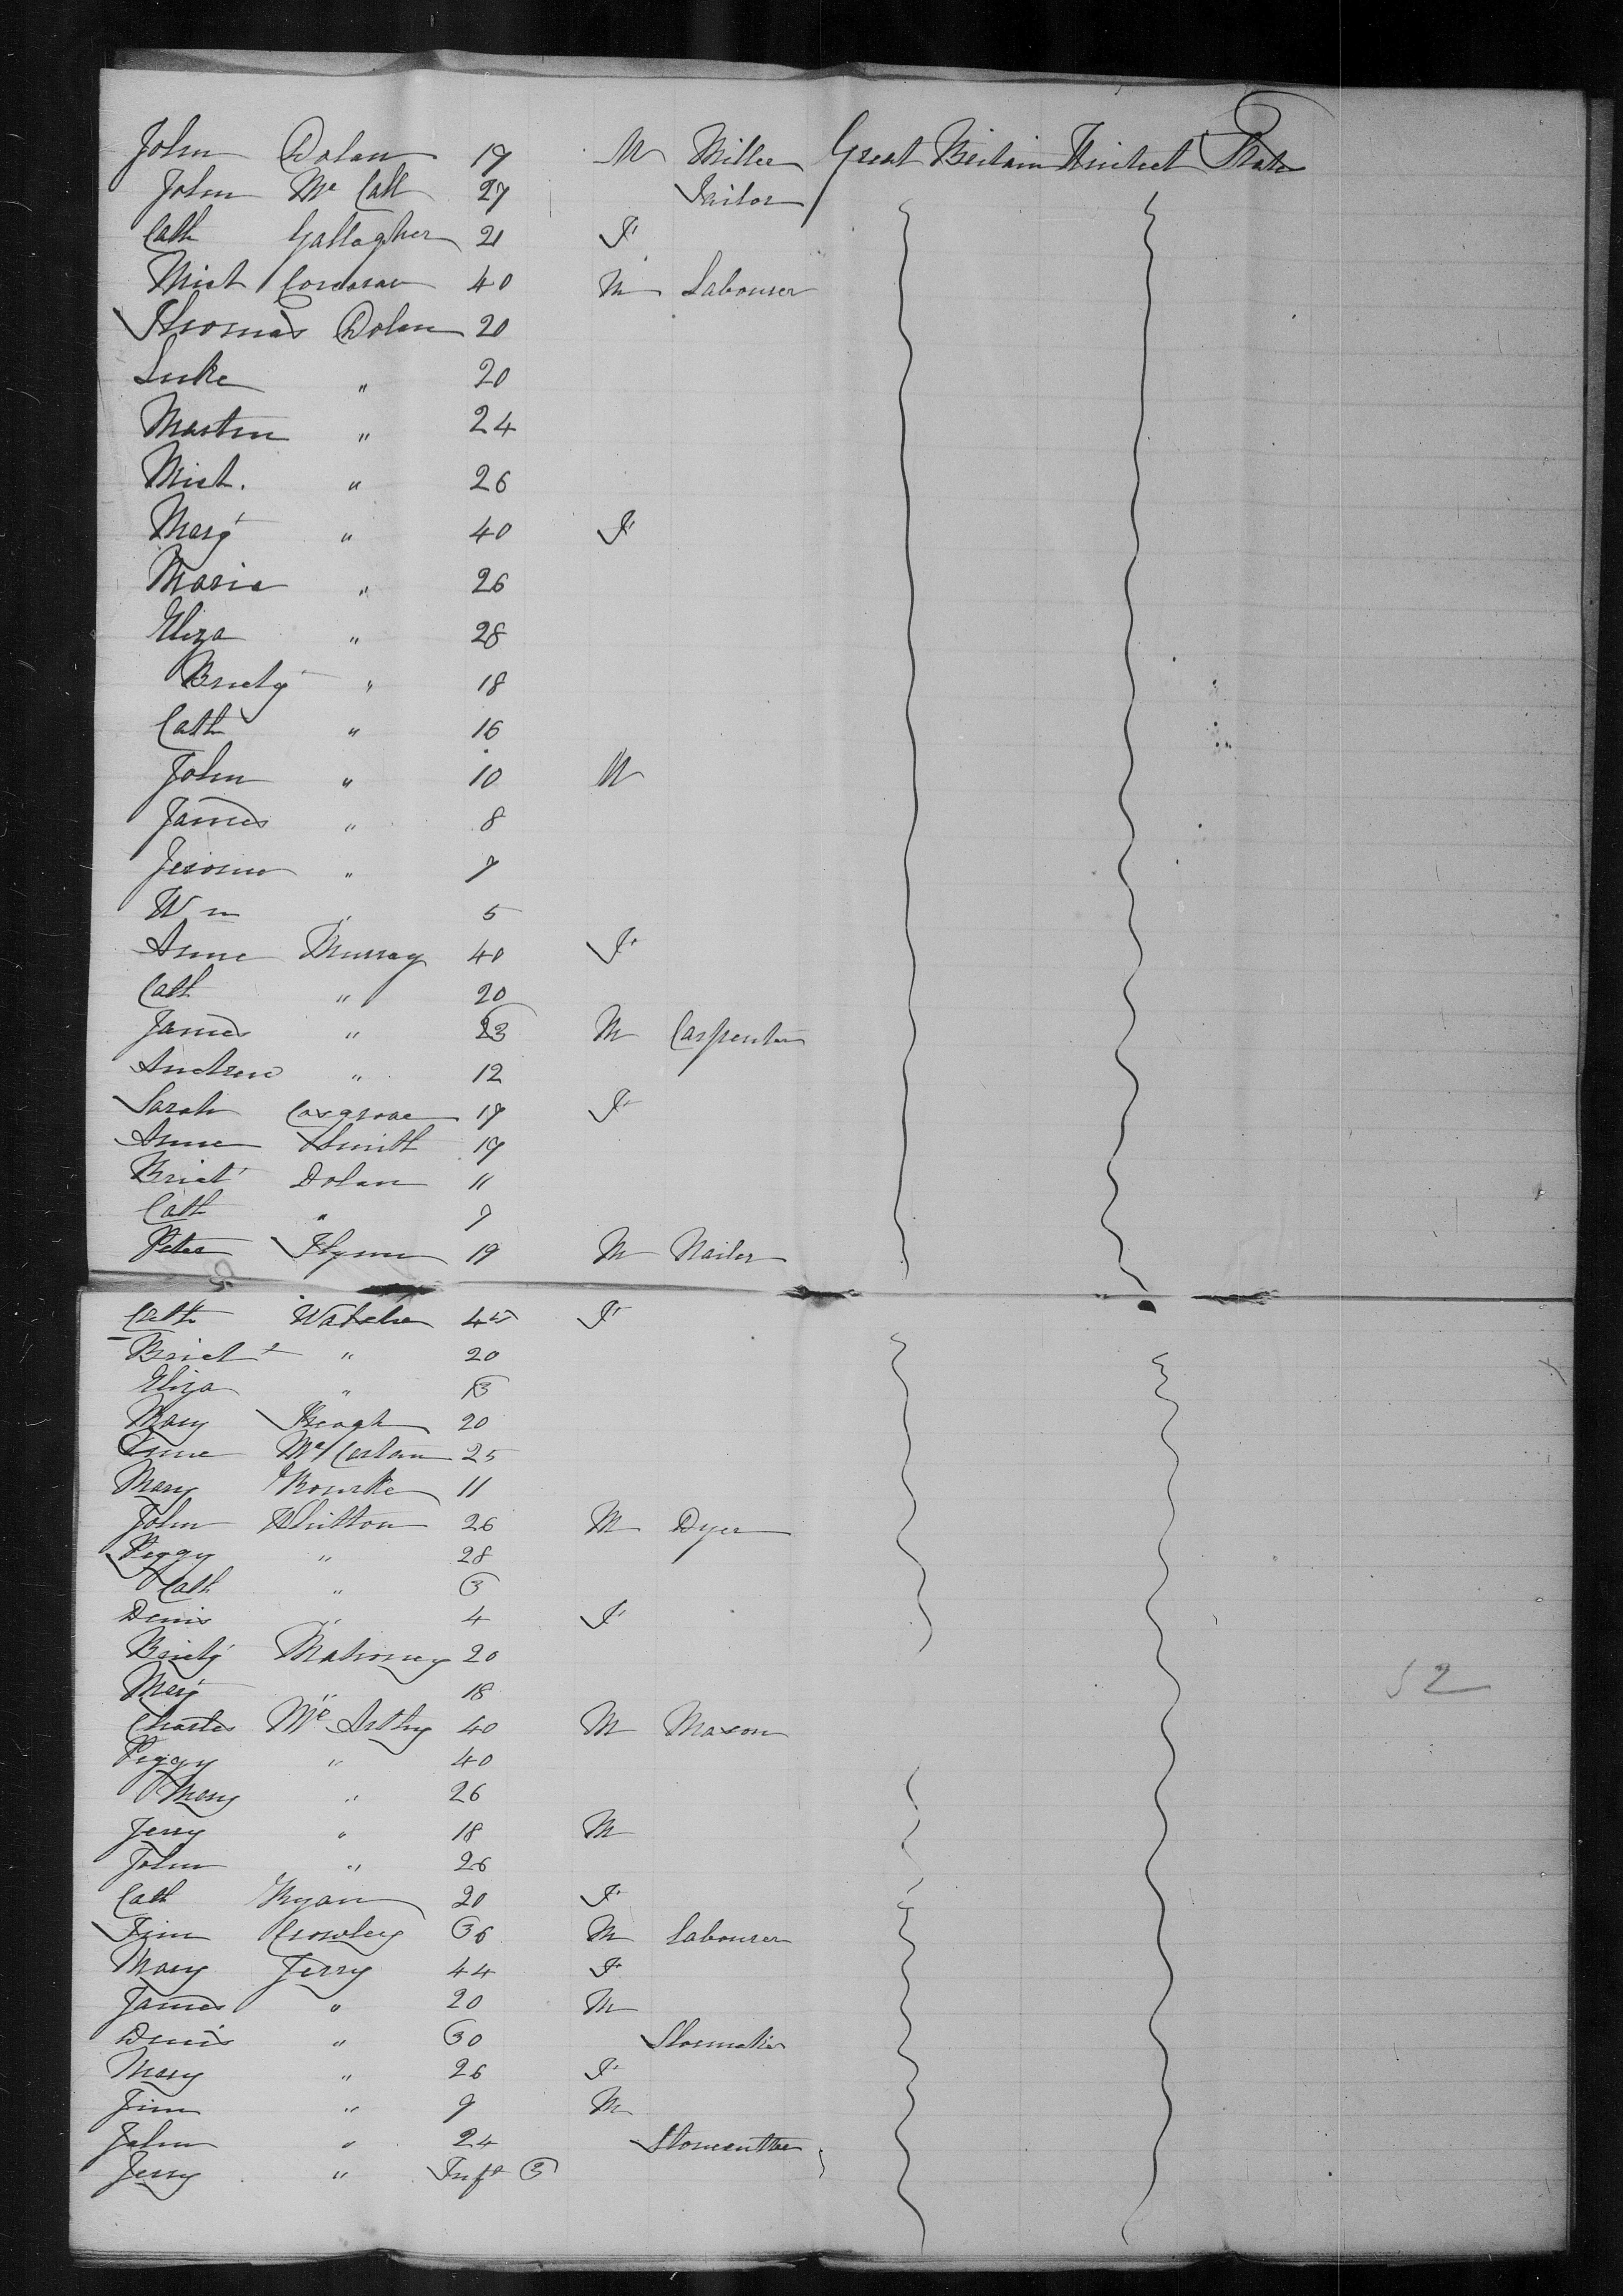 John Dolan 19 M Miller Great Britain United States
John Mc Call 27 Tailor
Cath Gallagher 21 F
Mich Corcoran 40 M Labourer
Thomas Dolan 20
Luke " 20
Martin " 24
Mich. " 26
Marg " 40 F
Maria " 26
Eliza " 28
Bridg " 18
Cath " 16
John " 10 M
James " 8
Jerome " 7
Wm " 5
Anne Murray 40 F
Cath " 20
James " 23 M Carpenter
Andrew " 12
Sarah Cosgrove 17 F
Anne Smith 19
Brid Dolan 11
Cath " 9
Peter Flynn 19 M Nailor
Cath 45 F
Bridt " 20
Eliza " 13
Mary Keogh 20
Anne Mc Carlan 25
Mary Rourke 11
John 26 M Dyer
Peggy " 28
Cath " 3
Denis " 4 F
Bridg Mahoney 20
Marg " 18
Charles Mc Arthy 40 M Mason
Peggy " 40
Mary " 26
Jerry " 18 M
John " 26
Cath Ryan 20 F
Tim Crowley 36 M Labourer
Mary Jerry 44 F
James " 20 M
Denis " 30 Shoemaker
Mary " 26 F
Jim " 9 M
John " 24 Stonecutter
Jerry " Inft 3
52